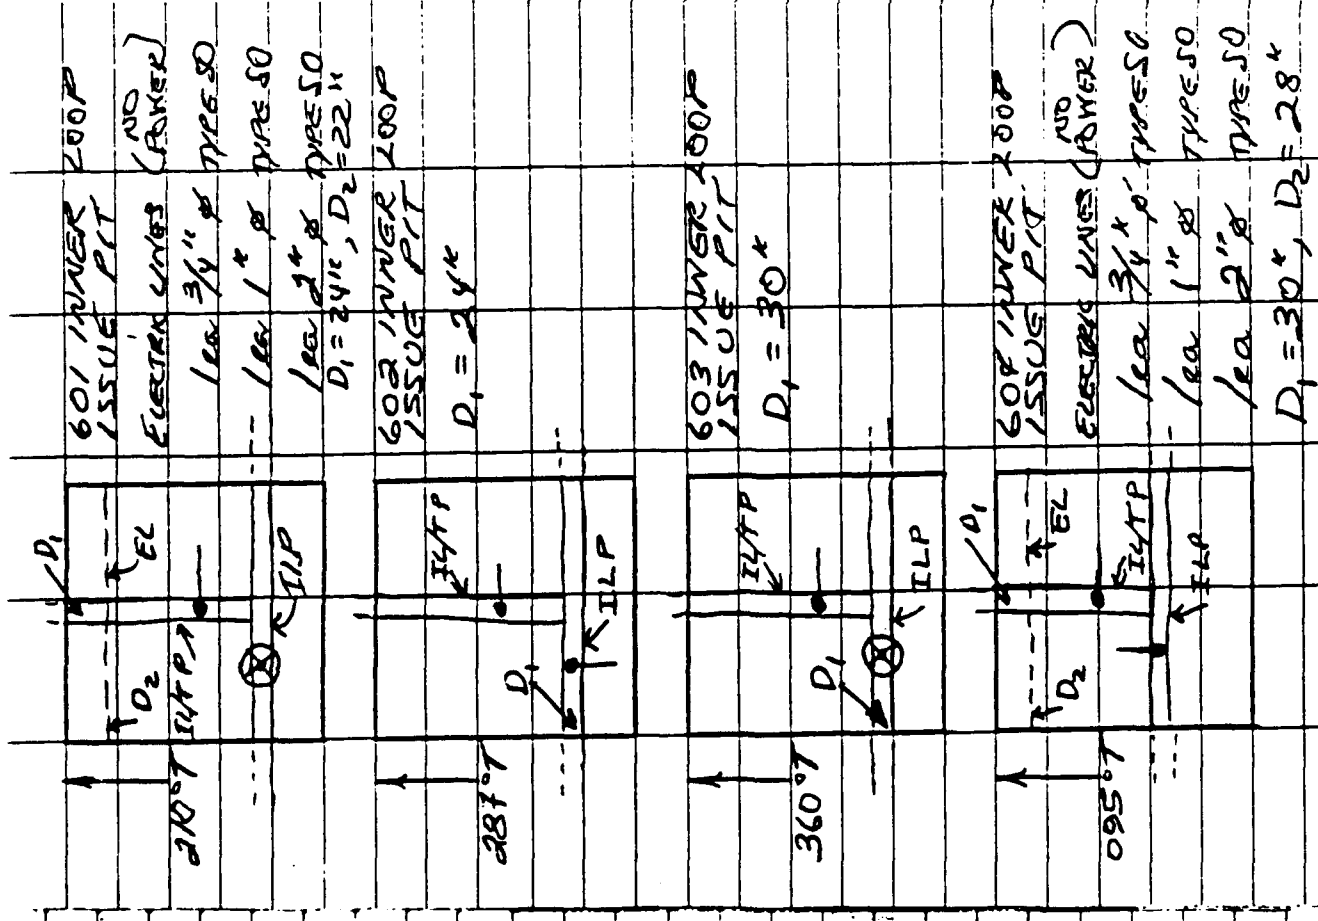 601 INNER LOOP
ISSUE PIT
ELECTRIC LINES (NO POWER)
1 ea 3/4" ø TYPE SO
1 ea 1" ø TYPE SO
1 ea 2" ø TYPE SO
D1 = 24", D2 = 22"
D1
EL
D2
IL/TP
ILP
210°T
602 INNER LOOP
ISSUE PIT
D1 = 24"
IL/TP
D1
ILP
287°T
603 INNER LOOP
ISSUE PIT
D1 = 30"
IL/TP
D1
ILP
360°T
604 INNER LOOP
ISSUE PIT
ELECTRIC LINES (NO POWER)
1 ea 3/4" ø TYPE SO
1 ea 1" ø TYPE SO
1 ea 2" ø TYPE SO
D1 = 30", D2 = 28"
D1
EL
D2
IL/TP
ILP
095°T